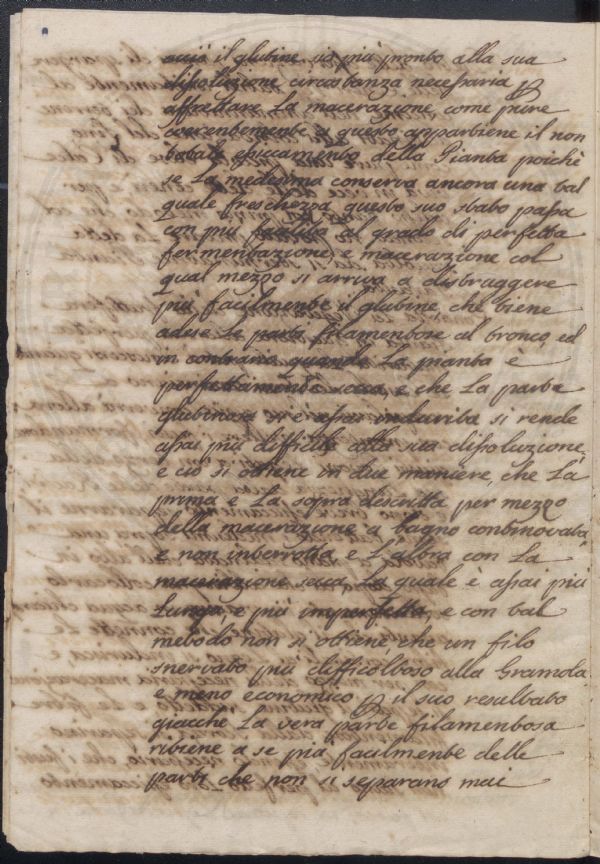 il glutine sia più pronto alla sua
dissoluzione circostanza necessaria p
affrettare La macerazione, come pure
coerentemente a questo appartiene il non
totale seccamento della Pianta poichè
se La medesima conserva ancora una tal
quale freschezza, questo suo stato passa
con più facilità al grado di perfetta
fermentazione, e macerazione col
qual mezzo si arriva a distruggere
più facilmente il glutine, che tiene
adese Le parti filamentose al tronco, ed
in contrario quando La pianta è
perfettamente secca, e che La parte
glutinosa si è assai indurita si rende
assai più difficile alla sua dissoluzione,
e ciò si ottiene in due maniere, che La
prima è La sopra descritta per mezzo
della macerazione a bagno continovata
e non interrotta e L'altra con La
macerazione secca, La quale è assai più
Lunga, e più imperfetta, e con tal
metodo non si ottiene, che un filo
snervato più difficoltoso alla Gramola
e meno economico p il suo resultato
giacchè La vera parte filamentosa
ritiene a se più facilmente delle
parti che non si separano mai